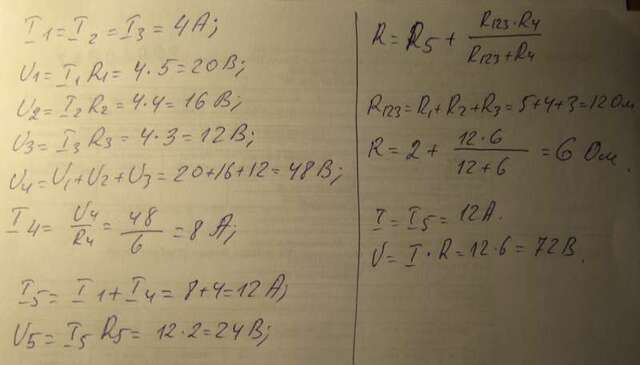 I1 = I2 = I3 = 4A;
U1 = I1 R1 = 4·5 = 20 В;
U2 = I2 R2 = 4·4 = 16 В;
U3 = I3 R3 = 4·3 = 12 В;
U4 = U1 + U2 + U3 = 20+16+12 = 48 В;
I4 = U4/R4 = 48/6 = 8 A;
I5 = I1 + I4 = 8+4 = 12 A;
U5 = I5 R5 = 12·2 = 24 В;
R = R5 + R123·R4/R123+R4
R123 = R1 + R2 + R3 = 5+4+3 = 12 Ом
R = 2 + 12·6/12+6 = 6 Ом.
I = I5 = 12A.
U = I·R = 12·6 = 72 В.